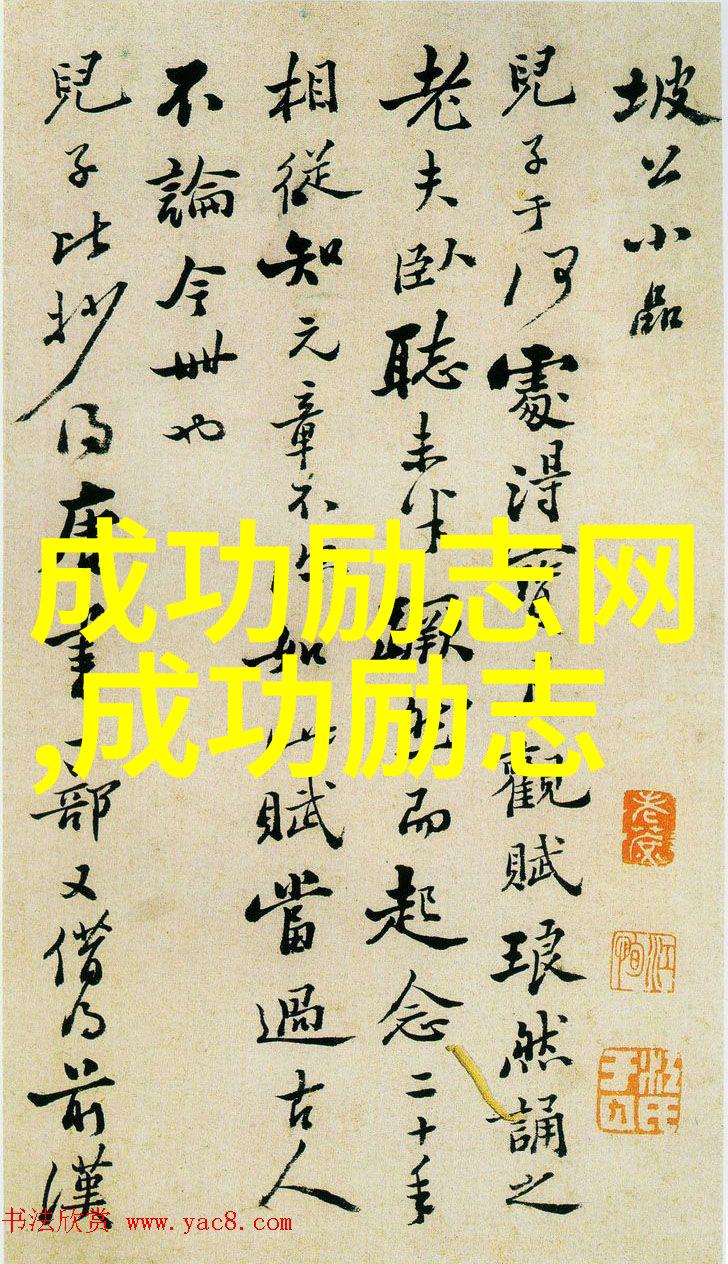 坡公小品
兒子于何處得觀賦琅然誦之
老夫臥聽未半蹶然而起念二十年
相從知元章不如此賦當過古人
不論今世也
兒子比抄得唐書一部又借得前漢
成功励志网
,成功励志
书法欣赏 www.yac8.com